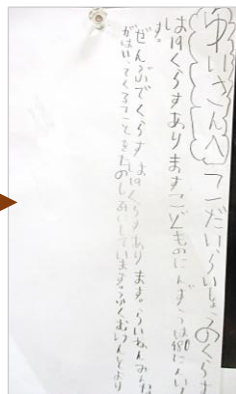 ゆいさんへ
こだいらいしょうのくらす
は19くらすあります。こどものにんずうは580にんいま
す。
ぜんぶでくらすは19くらすあります。らいねんみんな
がはいってくることをたのしみにしています。ふくむらんとより